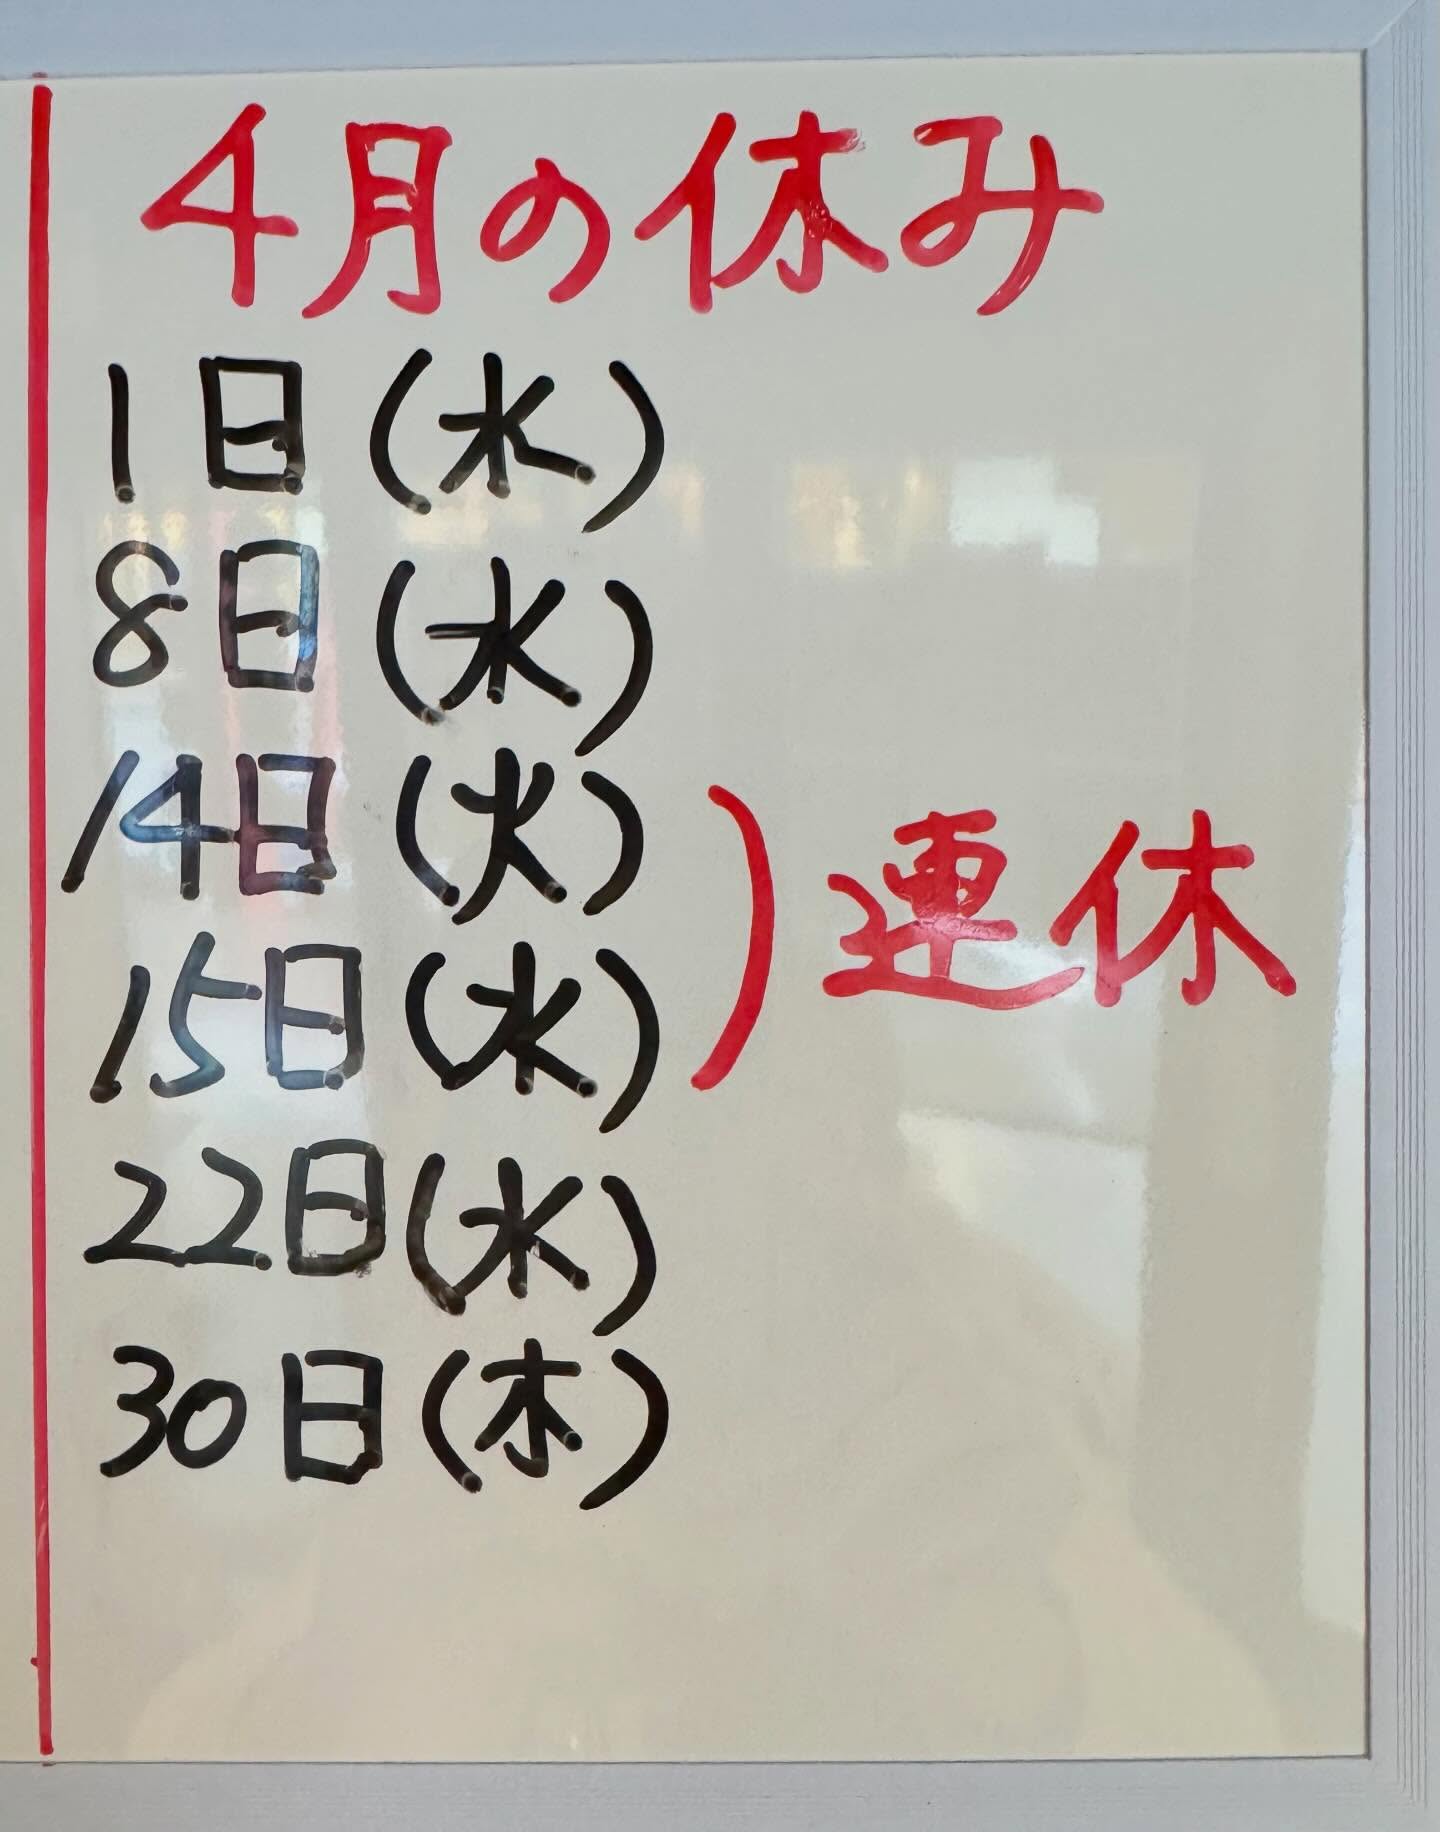 4月の休み
1日(水)
8日(水)
14日(火)
15日(水)
連休
22日(水)
30日(木)